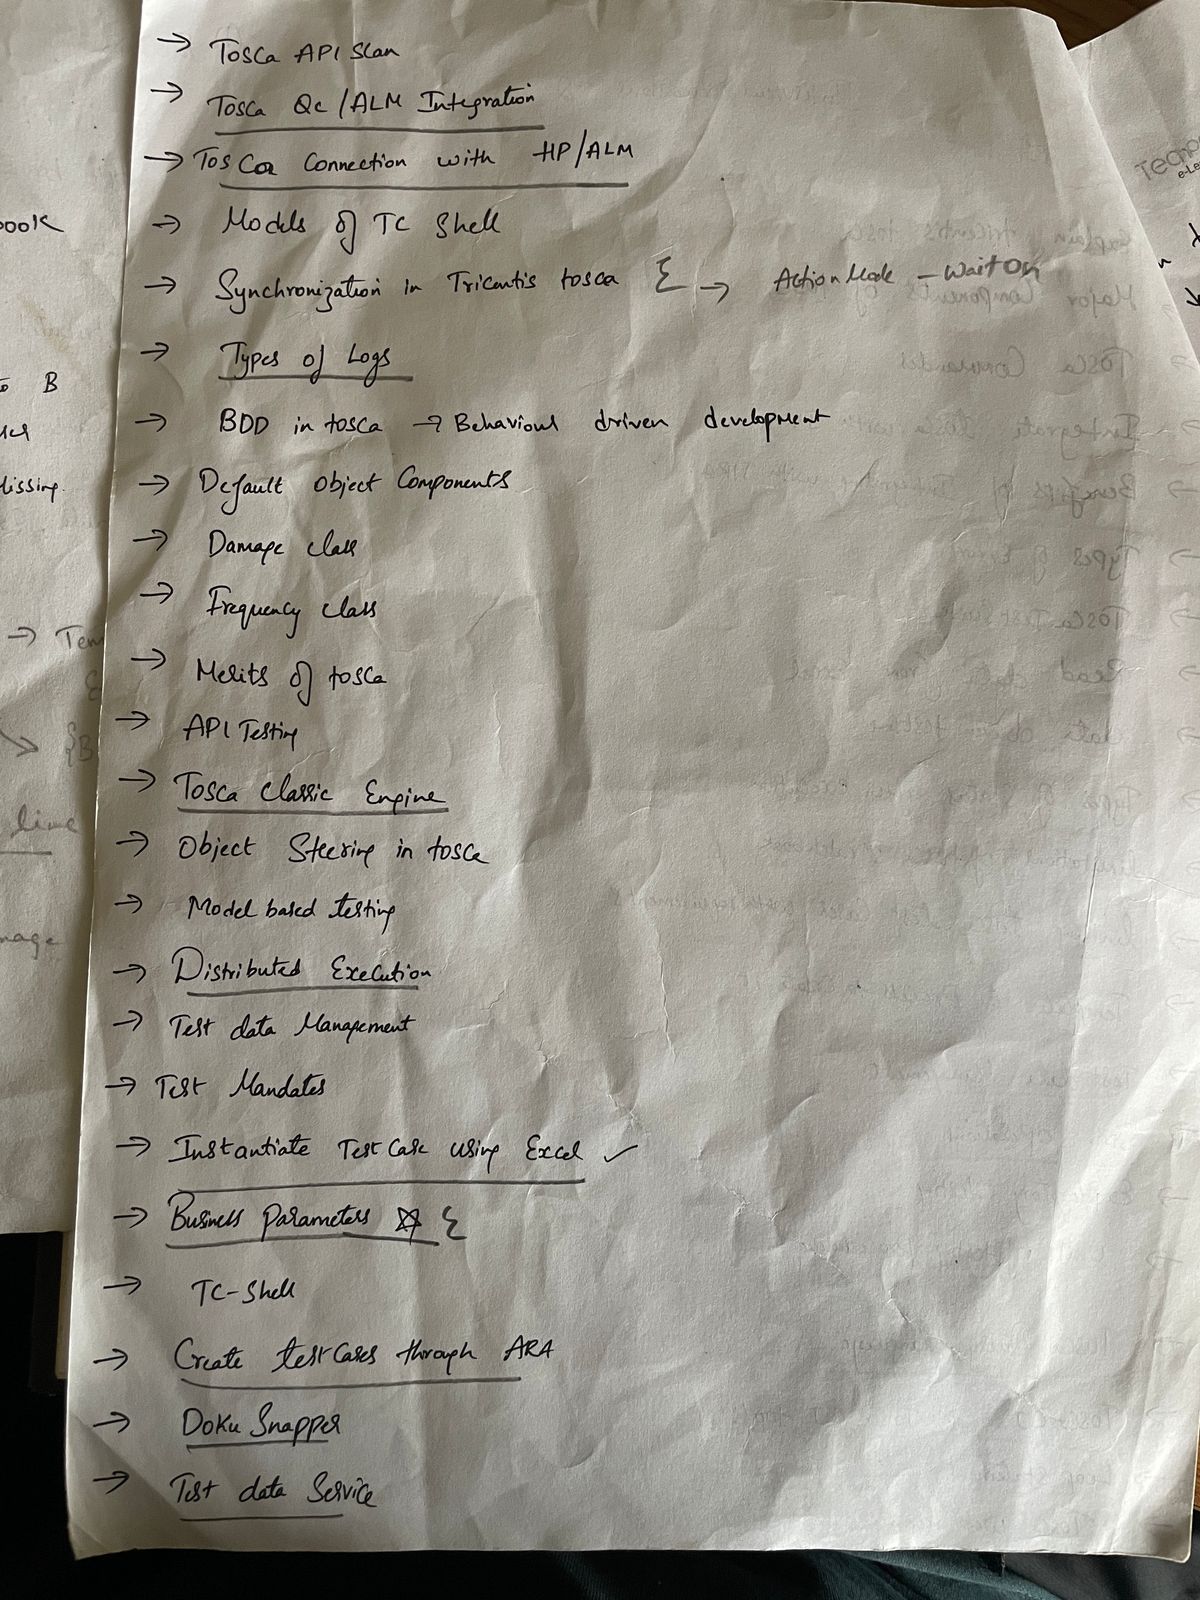 → Tosca API Scan
→ Tosca Qc/ALM Integration
→ Tosca Connection with HP/ALM
→ Models of TC Shell
→ Synchronization in Tricentis tosca { → Action Mode - Wait On
→ Types of Logs
→ BDD in tosca → Behaviour driven development
→ Default Object Components
→ Damage class
→ Frequency class
→ Merits of tosca
→ API Testing
→ Tosca Classic Engine
→ Object Steering in tosca
→ Model based testing
→ Distributed Execution
→ Test data Management
→ Test Mandates
→ Instantiate TestCase using Excel ✓
→ Business Parameters ☆ {
→ TC-Shell
→ Create testCases through ARA
→ Doku Snapper
→ Test data Service
book
to B
Missing.
→ Tem
{B
line
mage
Techp
e-Le